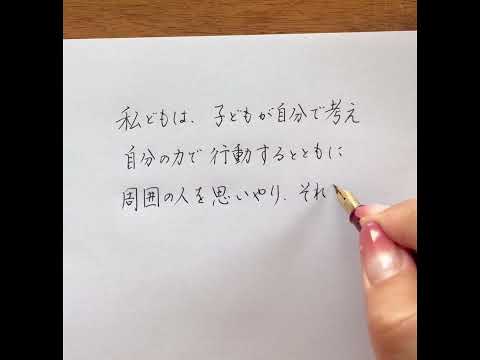 私どもは、子どもが自分で考え
自分の力で行動するとともに
周囲の人を思いやり、それ